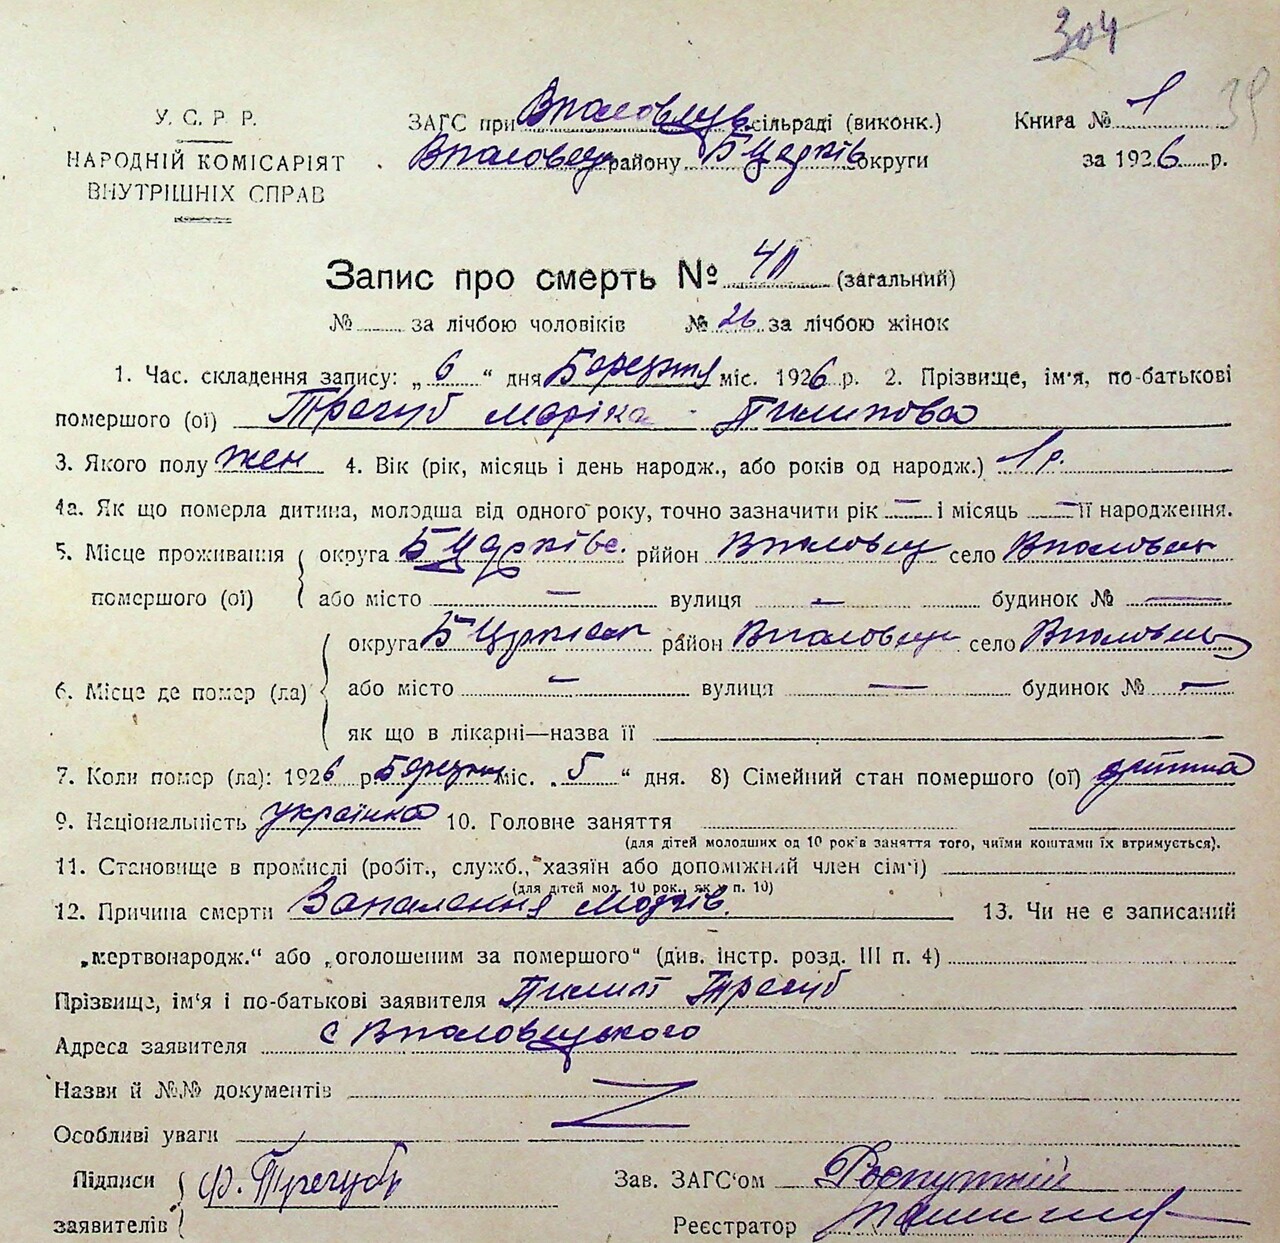 304
39
У. С. Р. Р.
НАРОДНІЙ КОМІСАРІЯТ
ВНУТРІШНІХ СПРАВ
ЗАГС при сільраді (виконк.)
району Б Церків округи
Книга № 1
за 1926 р.
Запис про смерть № 40 (загальний)
№ за лічбою чоловіків № 26 за лічбою жінок
1. Час. складення запису: „6“ дня Березня міс. 1926 р. 2. Прізвище, ім'я, по-батькові
помершого (ої) Трегуб Маріка Пилипова
3. Якого полу жен 4. Вік (рік, місяць і день народж., або років од народж.) 1 р.
4а. Як що померла дитина, молодша від одного року, точно зазначити рік — і місяць — її народження.
5. Місце проживання округа Б Церківс. рййон село
помершого (ої) або місто — вулиця — будинок № —
округа район село
6. Місце де помер (ла) або місто — вулиця — будинок № —
як що в лікарні—назва її
7. Коли помер (ла): 1926 р. Березня міс. „5“ дня. 8) Сімейний стан помершого (ої) дитина
9. Національність українка 10. Головне заняття
(для дітей молодших од 10 років заняття того, чиїми коштами їх втримується).
11. Становище в промислі (робіт., служб., хазяїн або допоміжний член сім'ї)
(для дітей мол. 10 рок., як у п. 10)
12. Причина смерти Запалення мозків. 13. Чи не є записаний
„мертвонародж.“ або „оголошеним за помершого“ (див. інстр. розд. III п. 4)
Прізвище, ім'я і по-батькові заявителя Пилип Трегуб
Адреса заявителя с
Назви й №№ документів
Особливі уваги
Підписи
заявителів Трегуб
Зав. ЗАГС'ом
Реєстратор